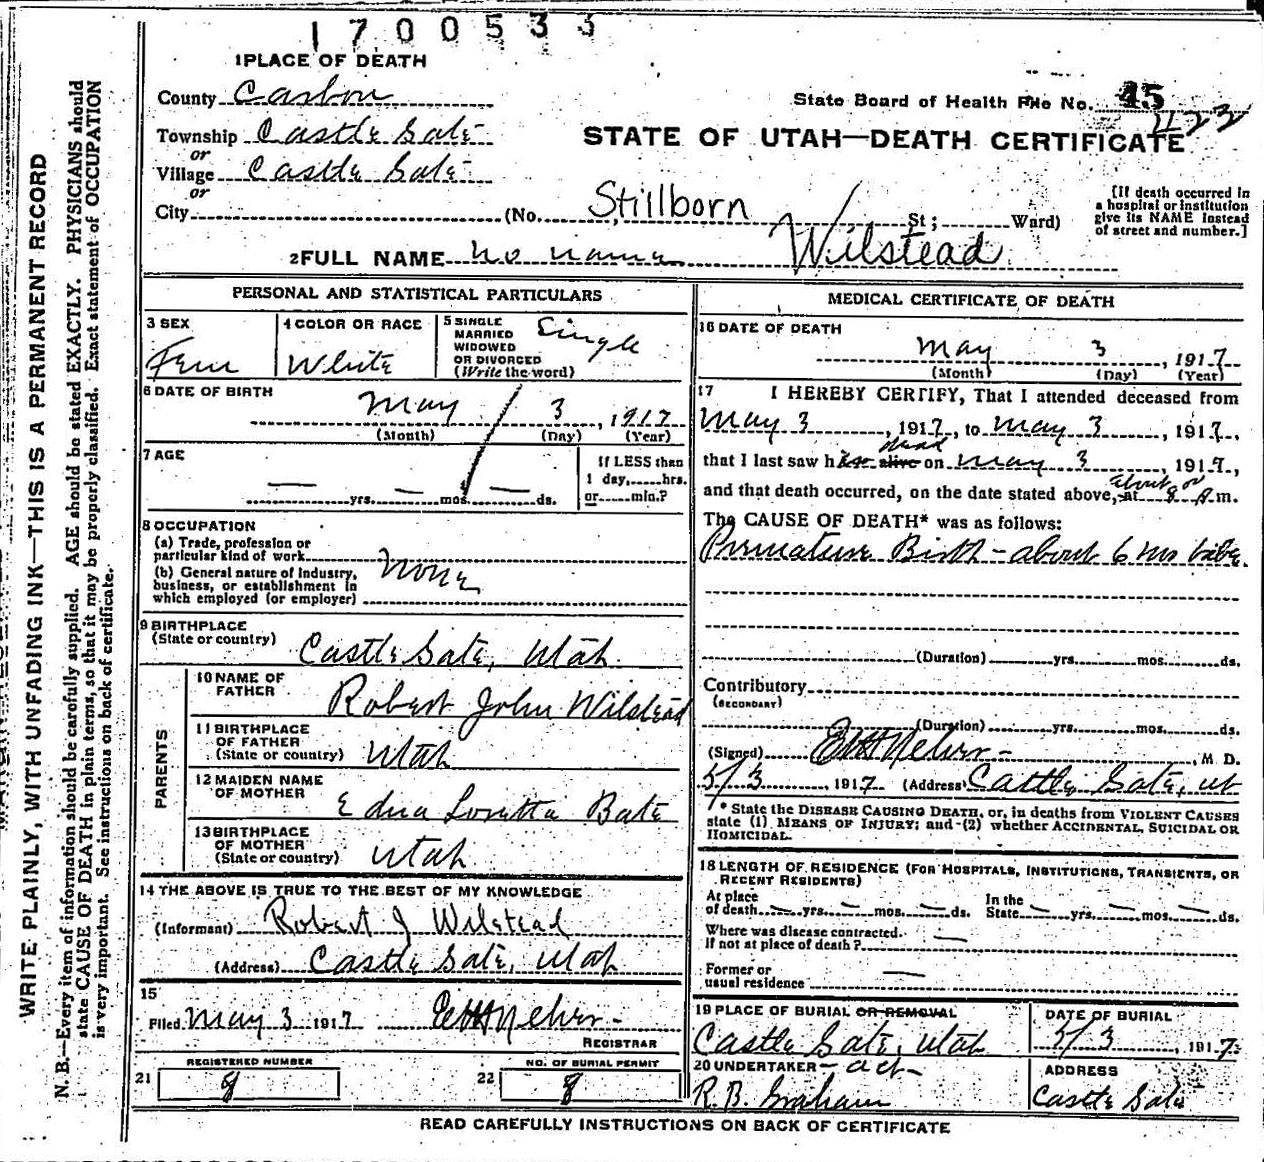 1700533
1 PLACE OF DEATH
County Carbon
State Board of Health File No. 45
423
Township Castle Gate
STATE OF UTAH—DEATH CERTIFICATE
or
Village Castle Gate
or
City (No. Stillborn St; Ward)
[If death occurred in a hospital or institution give its NAME instead of street and number.]
2 FULL NAME no name Wilstead
PERSONAL AND STATISTICAL PARTICULARS
3 SEX
Fem
4 COLOR OR RACE
White
5 SINGLE MARRIED WIDOWED OR DIVORCED (Write the word)
Single
6 DATE OF BIRTH
May 3, 1917
(Month) (Day) (Year)
7 AGE
— yrs. — mos. — ds.
If LESS than 1 day, hrs. or min.?
8 OCCUPATION
(a) Trade, profession or particular kind of work
(b) General nature of industry, business, or establishment in which employed (or employer)
none
9 BIRTHPLACE
(State or country) Castle Gate, Utah
PARENTS
10 NAME OF FATHER Robert John Wilstead
11 BIRTHPLACE OF FATHER (State or country) Utah
12 MAIDEN NAME OF MOTHER Edna Loretta Bate
13 BIRTHPLACE OF MOTHER (State or country) Utah
14 THE ABOVE IS TRUE TO THE BEST OF MY KNOWLEDGE
(Informant) Robert J Wilstead
(Address) Castle Gate, Utah
15
Filed May 3 1917
REGISTRAR
REGISTERED NUMBER
21 8
NO. OF BURIAL PERMIT
22 8
MEDICAL CERTIFICATE OF DEATH
16 DATE OF DEATH
May 3, 1917
(Month) (Day) (Year)
17 I HEREBY CERTIFY, That I attended deceased from
May 3, 1917, to May 3, 1917,
dead
that I last saw h alive on May 3, 1917,
about
and that death occurred, on the date stated above, at 8 m.
The CAUSE OF DEATH* was as follows:
Premature Birth - about 6 mo
(Duration) yrs. mos. ds.
Contributory
(SECONDARY)
(Duration) yrs. mos. ds.
(Signed) M D.
5/3, 1917 (Address) Castle Gate, Ut
* State the DISEASE CAUSING DEATH, or, in deaths from VIOLENT CAUSES state (1) MEANS OF INJURY; and (2) whether ACCIDENTAL, SUICIDAL OR HOMICIDAL.
18 LENGTH OF RESIDENCE (FOR HOSPITALS, INSTITUTIONS, TRANSIENTS, OR RECENT RESIDENTS)
At place of death — yrs. — mos. — ds. In the State — yrs. — mos. — ds.
Where was disease contracted. If not at place of death? —
Former or usual residence —
19 PLACE OF BURIAL OR REMOVAL
Castle Gate, Utah
DATE OF BURIAL
5/3, 1917
20 UNDERTAKER - act -
R. B. Graham
ADDRESS
Castle Gate
READ CAREFULLY INSTRUCTIONS ON BACK OF CERTIFICATE
WRITE PLAINLY, WITH UNFADING INK—THIS IS A PERMANENT RECORD
N. B.—Every item of information should be carefully supplied. AGE should be stated EXACTLY. PHYSICIANS should
state CAUSE OF DEATH in plain terms, so that it may be properly classified. Exact statement of OCCUPATION
is very important. See instructions on back of certificate.